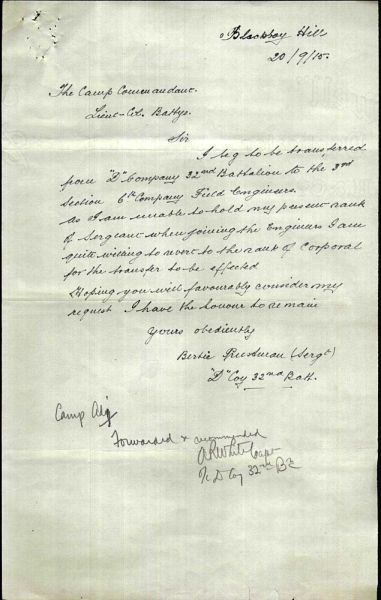 Blackboy Hill
20/9/15.
The Camp Commandant.
Lieut-Col. Battye.
Sir
I beg to be transferred
from "D" Company 32nd Battalion to the 3rd
Section 6th Company Field Engineers.
As I am unable to hold my present rank
of Sergeant when joining the Engineers I am
quite willing to revert to the rank of Corporal
for the transfer to be effected
Hoping you will favourably consider my
request I have the honour to remain
Yours obediently
Bertie (Sergt)
"D" Coy 32nd Batt.
Camp Adj
Forwarded & recommended
White Capt
D Coy 32nd Bn